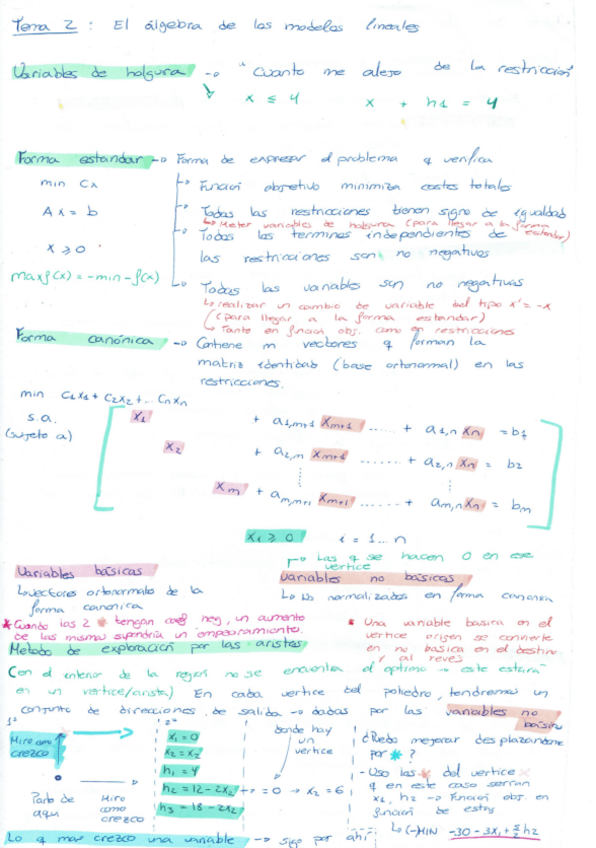 Tema 2 : El álgebra de los modelos lineales
Variables de holgura → "Cuanto me alejo de la restricción
x ≤ 4   x + h1 = 4
Forma estandar → Forma de expresar el problema q verifica
min Cx
Función objetivo minimiza costes totales
Ax = b
Todas las restricciones tienen signo de igualdad
↳ Meter variables de holgura (para llegar a la forma estandar)
x ≥ 0
Todas las terminos independientes de
las restricciones son no negativas
max f(x) = -min -f(x)
Todas las variables son no negativas
↳ realizar un cambio de variable del tipo x' = -x
(para llegar a la forma estandar)
↳ Tanto en función obj. como en restricciones
Forma canónica → Contiene m vectores q forman la
matriz identidad (base ortonormal) en las
restricciones.
min C1x1 + C2x2 + ... Cnxn
s.a.
(sujeto a)
x1 + a1,m+1 xm+1 ...... + a1,n xn = b1
x2 + a2,m xm+1 ...... + a2,n xn = b2
xm + am,m+1 xm+1 ...... + am,n xn = bm
xi ≥ 0   i = 1... n
Variables básicas
↳ vectores ortonormales de la
forma canónica
* Cuando las 2 * tengan coef neg, un aumento
de las mismas supondría un empeoramiento.
→ Las q se hacen 0 en ese
vertice
Variables no básicas
↳ No normalizados en forma canonica
* Una variable basica en el
vertice origen se convierte
en no basica en el destino
y al revés
Metodo de exploración por las aristas
Con el interior de la region no se encuentra el optimo → este estará
en un vertice/arista) En cada vertice del poliedro, tendremos un
conjunto de direcciones de salida → dadas por las variables no
basicas
1º
Miro como
crezco
Parto de
aqui
Miro
como
crezco
2º
x1 = 0
x2 = x2
h1 = 4
h2 = 12 - 2x2 → = 0 → x2 = 6
h3 = 18 - 2x2
donde hay
un
vertice
¿Puedo mejorar desplazandome
por * ?
- Uso las * del vertice
q en este caso serran
x1, h2 → Función obj. en
función de estas
↳ (-) MIN -30 - 3x1 + 5/2 h2
Lo q mas crezco una variable → sigo por ahí